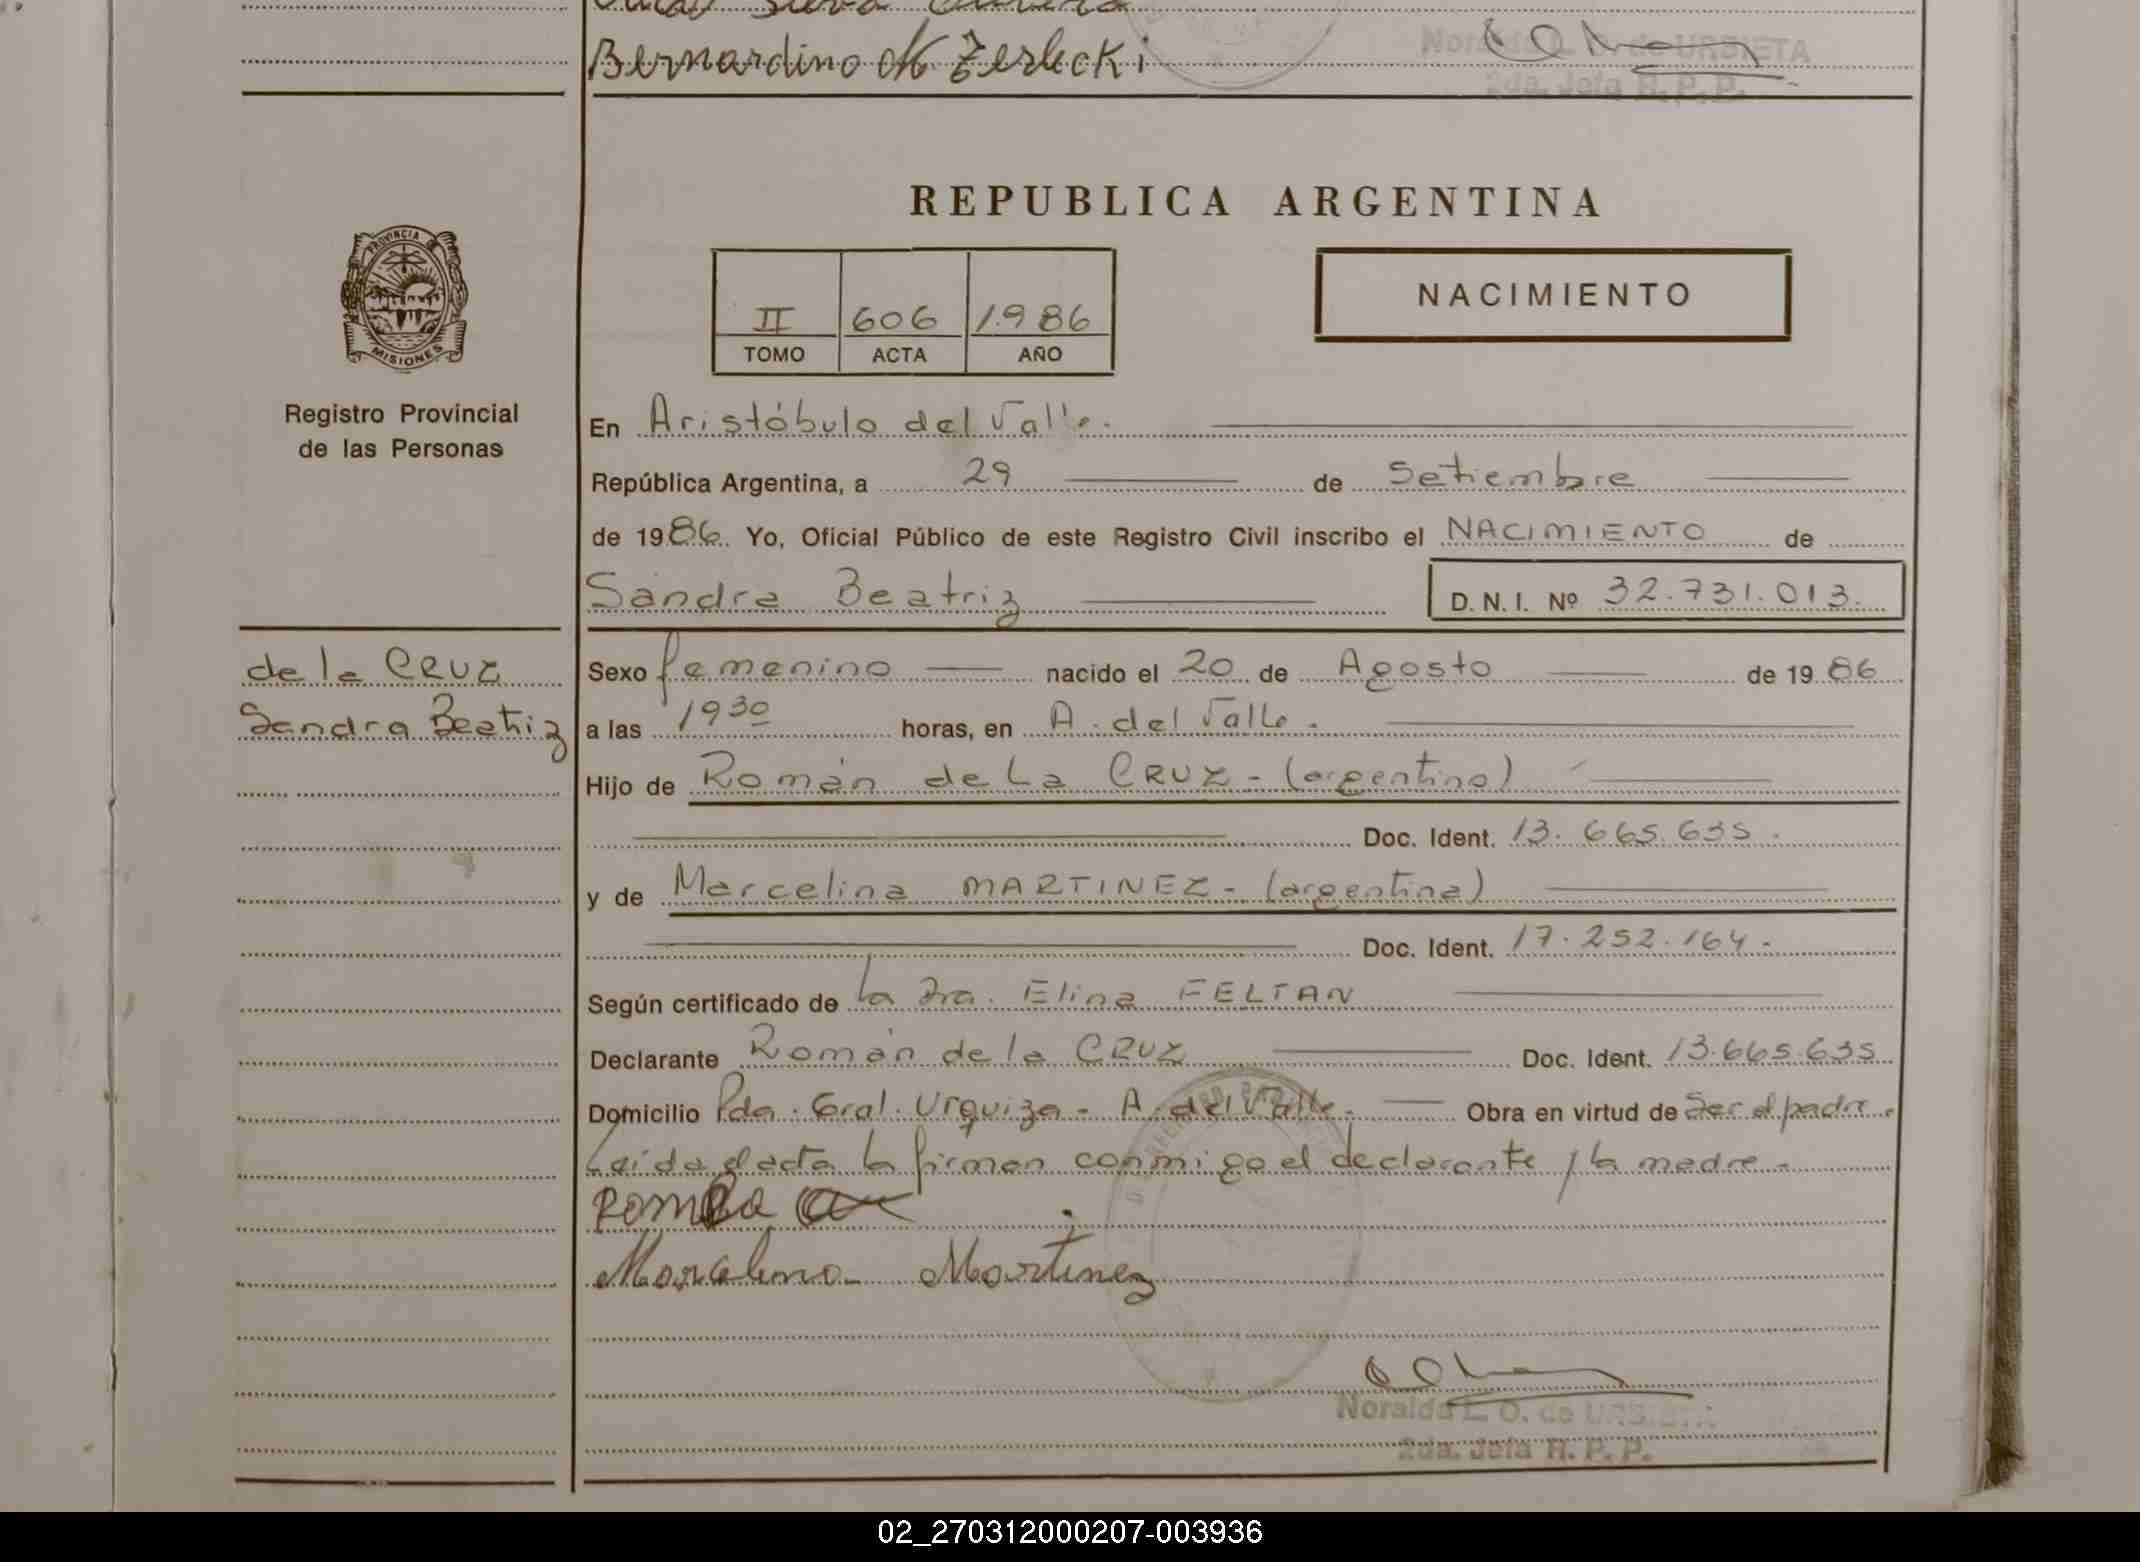 Bernardino M Zerlecki
Noralda L. O. de URBIETA
2da. Jefa R. P. P.
REPUBLICA ARGENTINA
PROVINCIA DE
MISIONES
II 606 1.986
TOMO ACTA AÑO
NACIMIENTO
Registro Provincial
de las Personas
En Aristóbulo del Valle.
República Argentina, a 29 de Setiembre
de 1986. Yo, Oficial Público de este Registro Civil inscribo el NACIMIENTO de
Sandra Beatriz D. N. I. Nº 32.731.013.
de la CRUZ
Sandra Beatriz
Sexo femenino nacido el 20 de Agosto de 1986
a las 1930 horas, en A. del Valle.
Hijo de Román de La CRUZ - (argentino)
Doc. Ident. 13.665.635.
y de Marcelina MARTINEZ - (argentina)
Doc. Ident. 17.252.164.
Según certificado de la Dra. Elina FELTAN
Declarante Román de la CRUZ Doc. Ident. 13.665.635
Domicilio Pda. Gral. Urquiza - A. del Valle. Obra en virtud de Ser el padre.
Leída el acta la firman conmigo el declarante y la madre.
Marcelina Martinez
Noralda L. O. de URBIETA
2da. Jefa R. P. P.
02_270312000207-003936